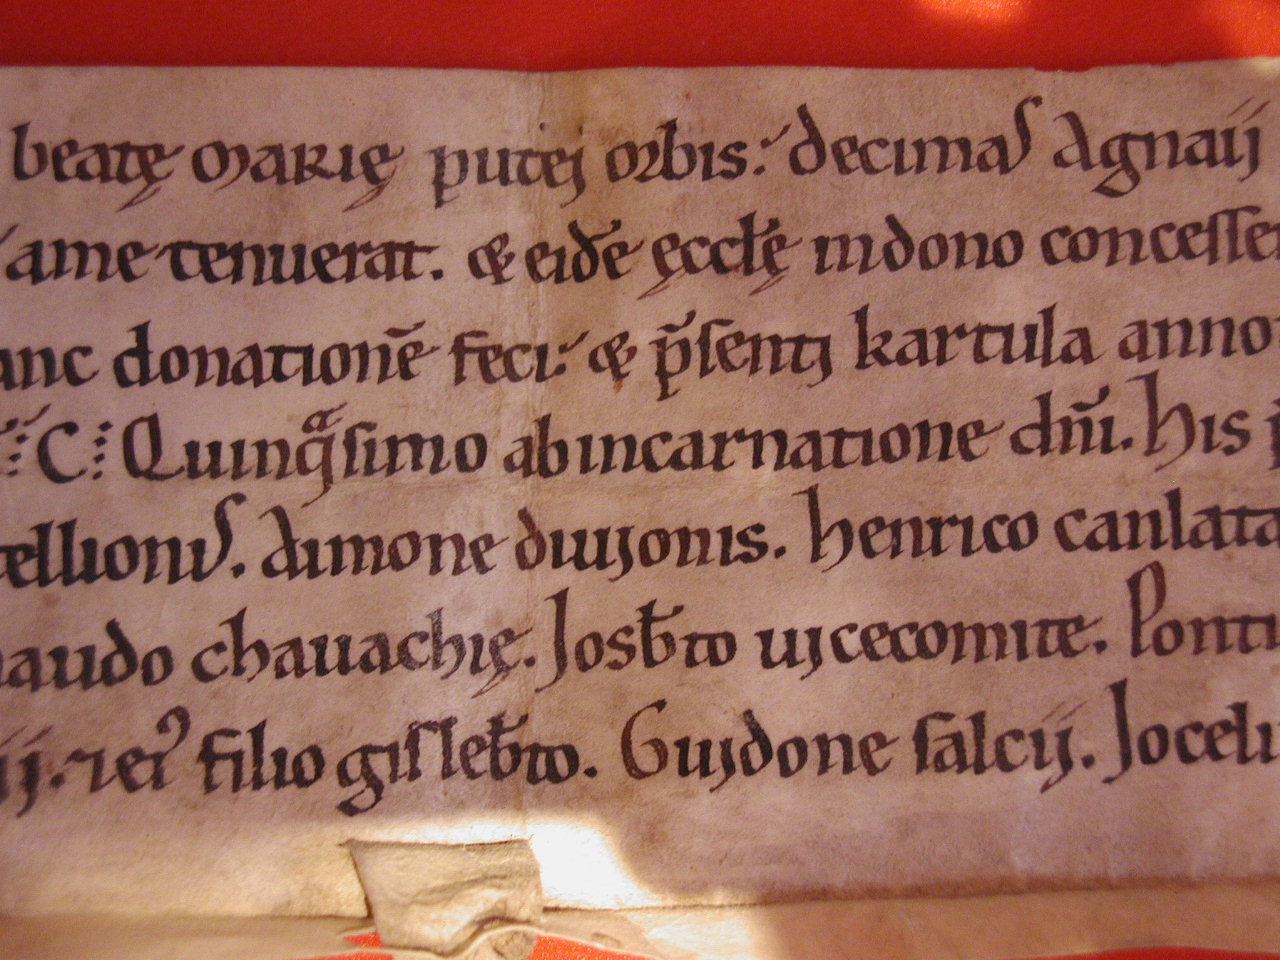 beatę Marię putei orbis: decimas Agnaij
ame tenuerat. & eidē ęccłę in dono concesser
anc donationē feci: & p̄senti kartula anno
C Quinqᵃsimo ab incarnatione dñi. His
tellionis. Aimone diuionis. Henrico
audo chauachię. Josb̄to uicecomite. Ponti
ij. ⁊ ei᾿ filio gisleb̄to. Guidone salcij. Joceli